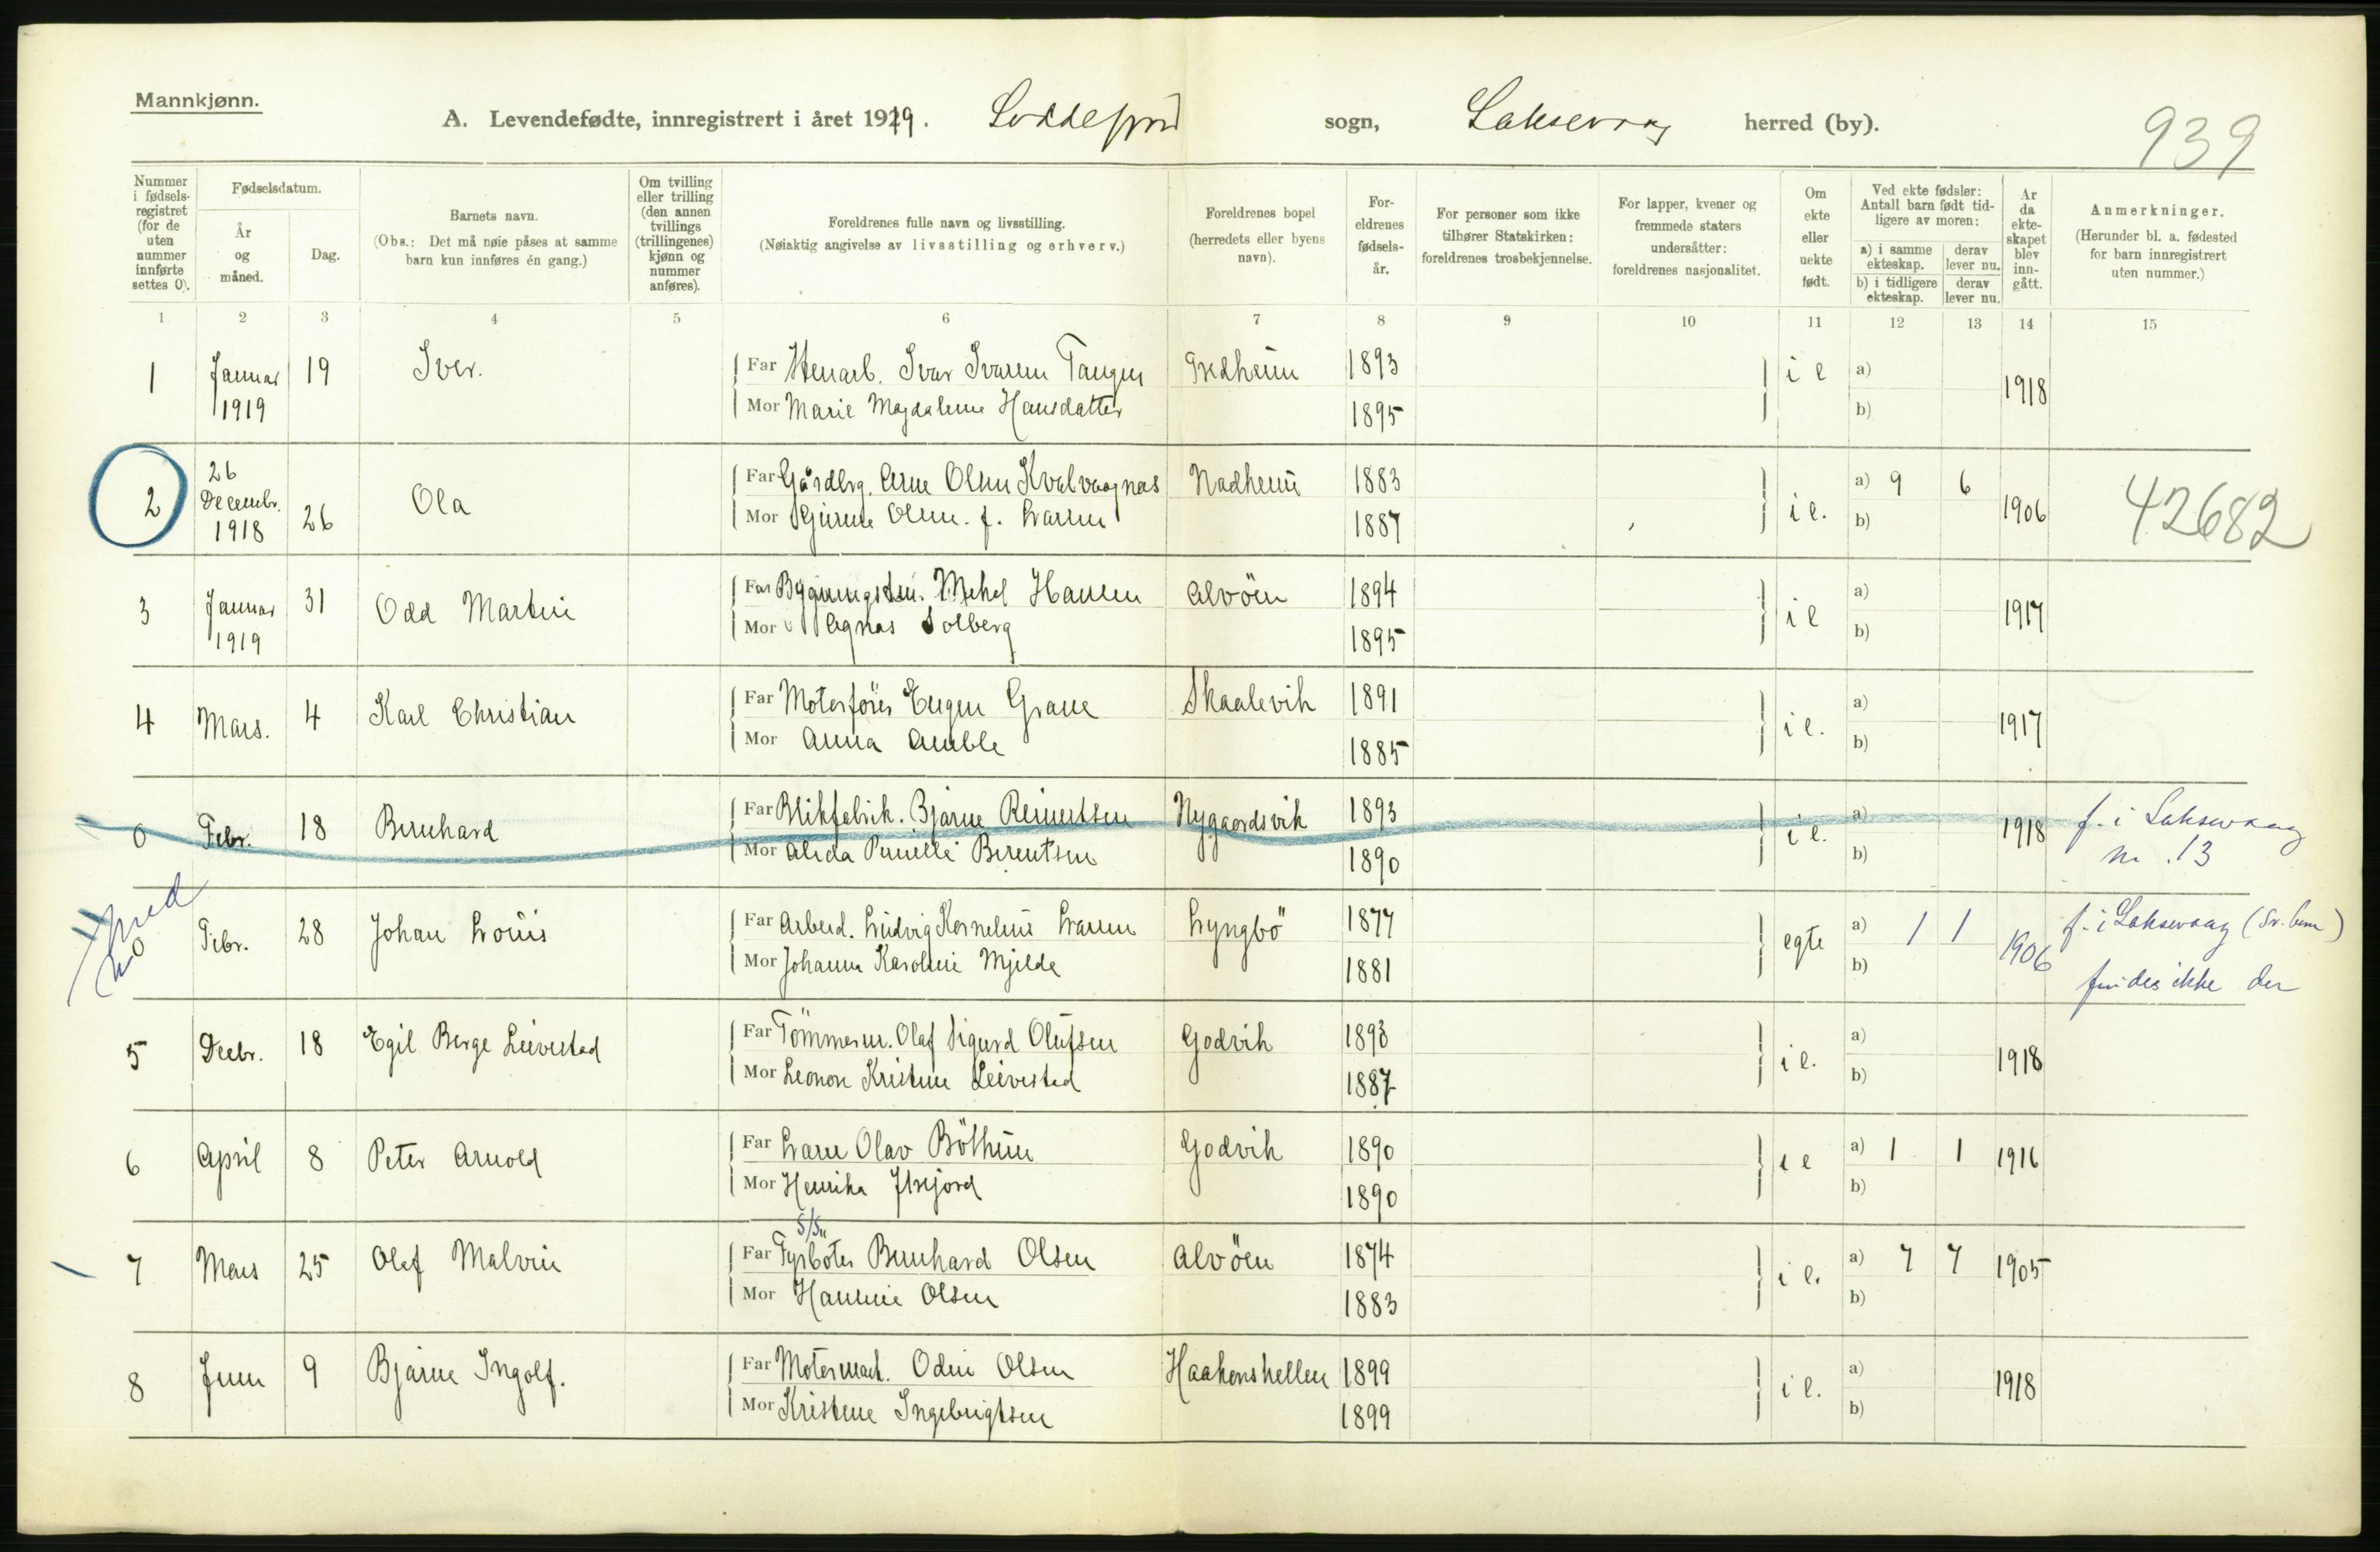 Mannkjønn.
A. Levendefødte, innregistrert i året 1919. Loddefjord sogn, Laksevaag herred (by).
939
Nummer i fødsels-registret (for de uten nummer innførte settes 0).
Fødselsdatum.
År og måned.
Dag.
Barnets navn.
(Obs.: Det må nøie påses at samme barn kun innføres én gang.)
Om tvilling eller trilling (den annen tvillings (trillingenes) kjønn og nummer anføres).
Foreldrenes fulle navn og livsstilling.
(Nøiaktig angivelse av livsstilling og erhverv.)
Foreldrenes bopel (herredets eller byens navn).
For-eldrenes fødsels-år.
For personer som ikke tilhører Statskirken: foreldrenes trosbekjennelse.
For lapper, kvener og fremmede staters undersåtter: foreldrenes nasjonalitet.
Om ekte eller uekte født.
Ved ekte fødsler: Antall barn født tid-ligere av moren:
a) i samme ekteskap.
derav lever nu.
b) i tidligere ekteskap.
derav lever nu.
År da ekte-skapet blev inn-gått.
Anmerkninger.
(Herunder bl. a. fødested for barn innregistrert uten nummer.)
1 2 3 4 5 6 7 8 9 10 11 12 13 14 15
1 Januar 1919 19 Iver. Far Ivar Tangen 1893 i e a) 1918
Mor Marie Magdalene Hansdatter 1895 b)
2 26 Decembr. 1918 26 Ola Far Gårdbrg. Arne Olsen Kvalvaagnæs Nadheim 1883 i e. a) 9 6 1906 42682
Mor Gurine Olsen. f. Larsen 1887 b)
3 Januar 1919 31 Odd Martin Far Mikal Hansen Alvöen 1894 i e a) 1917
Mor Agnas Solberg 1895 b)
4 Mars. 4 Karl Christian Far Motorförer Eugen Grane Skaalevik 1891 i e. a) 1917
Mor Anna Amble 1885 b)
0 Febr. 18 Bernhard Far Blikfabrik. Bjarne Reinertsen Nygaardsvik 1893 i e. a) 1918 f. i Laksevaag
Mor Alida Pernille Berentsen 1890 b) nr. 13
0 Febr. 28 Johan Louis Far Arbeid. Ludvig Kornelius Larsen Lyngbö 1877 egte a) 1 1 1906 f. i Laksevaag
Mor Johanna Karoline Mjelde 1881 b) findes ikke der
5 Decbr. 18 Egil Berge Leivestad Far Tömmerm. Olaf Sigurd Olufsen Godvik 1893 i e. a) 1918
Mor Leonore Kristine Leivestad 1887 b)
6 April 8 Peter Arnold Far Lars Olav Böthun Godvik 1890 i e a) 1 1 1916
Mor Henrika 1890 b)
7 Mars 25 Olaf Malvin Far Fyrböter Bernhard Olsen Alvöen 1874 i e. a) 7 7 1905
Mor Hansine Olsen 1883 b)
8 Juni 9 Bjarne Ingolf. Far Motormask. Odin Olsen Haakonshellen 1899 i e. a) 1918
Mor Kristine Ingebrigtsen 1899 b)